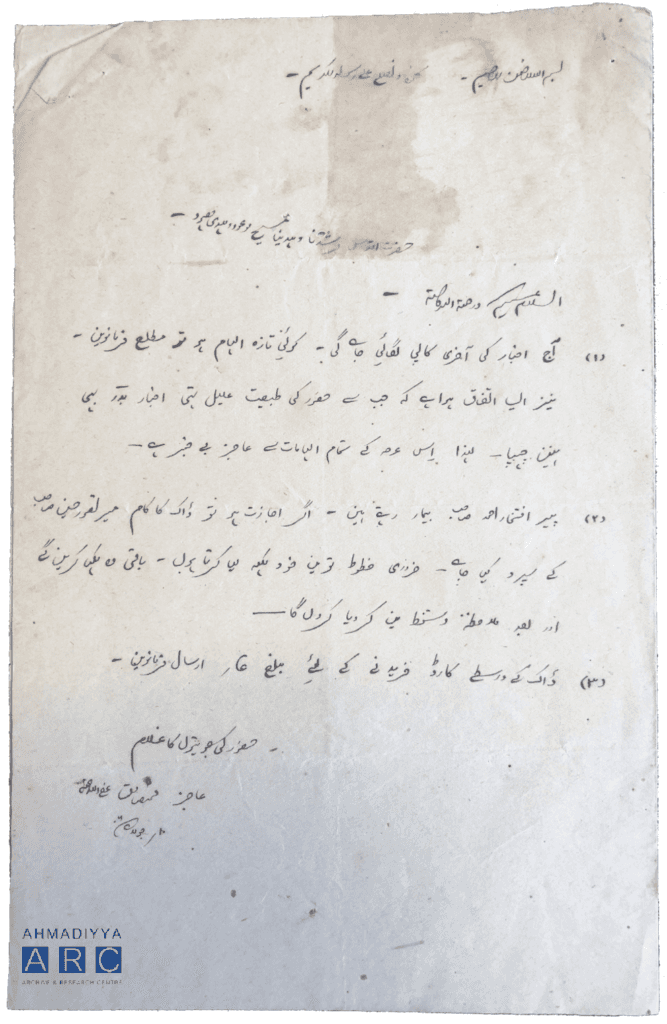 بسم اللہ الرحمن الرحیم - نحمدہ و نصلی علی رسولہ الکریم -
حضرت اقدس مرشدنا و مہدینا مسیح موعود و مہدی معہود -
السلام علیکم ورحمۃ اللہ وبرکاتہ -
(۱) آج اخبار کی آخری کاپی لگائی جائے گی - کوئی تازہ الہام ہو تو مطلع فرماویں -
نیز ایسا اتفاق ہوا ہے کہ جب سے حضور کی طبیعت علیل تھی اخبار بدر بھی
نہیں چھپا - لہذا اس وجہ کے تمام الہامات سے عاجز بے خبر ہے -
(۲) پیر افتخار احمد صاحب بیمار رہتے ہیں - اگر اجازت ہو تو ڈاک کا کام میر صاحب
کے سپرد کیا جائے - ضروری خطوط تو میں خود لکھ لیا کرتا ہوں - باقی وہ لکھ کریں گے
اور بعد ملاحظہ دستخط میں کر دیا کروں گا -
(۳) ڈاک کے واسطے کارڈ خریدنے کے لئے مبلغ ارسال فرماویں -
حضور کی جوتیوں کا غلام
عاجز محمد صادق عفا اللہ عنہ
AHMADIYYA
ARC
ARCHIVE & RESEARCH CENTRE